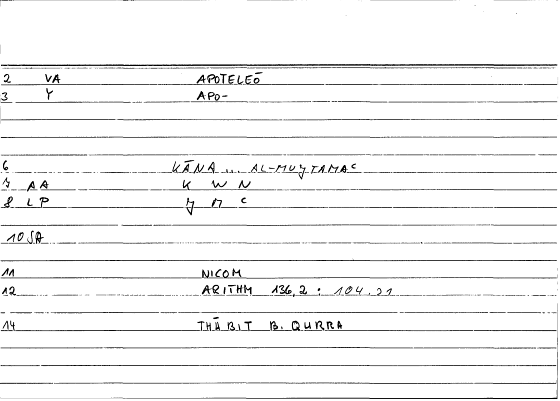 2 VA APOTELEŌ
3 Y APO-
6 KĀNA ... AL-MUǦTAMAC
7 AA K W N
8 LP Ǧ M C
10 SA
11 NICOM
12 ARITHM 136,2 : 104.21
14 THĀBIT B. QURRA